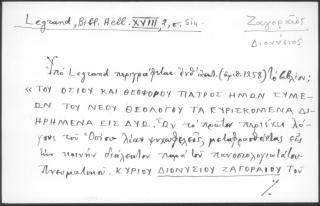 Legrand, Bibl. Hell. XVIII, 2, σ. 514
Ζαγοραῖος
Διονύσιος
Ὑπὸ Legrand περιγράφεται ἐνθ' ἀνωτ. (ἀριθ. 1258) τὸ βιβλίον:
« ΤΟΥ ΟΣΙΟΥ ΚΑΙ ΘΕΟΦΟΡΟΥ ΠΑΤΡΟΣ ΗΜΩΝ ΣΥΜΕ-
ΩΝ ΤΟΥ ΝΕΟΥ ΘΕΟΛΟΓΟΥ ΤΑ ΕΥΡΙΣΚΟΜΕΝΑ ΔΙ-
ΗΡΗΜΕΝΑ ΕΙΣ ΔΥΩ. Ὧν τὸ πρῶτον περιέχει λό-
γους τοῦ Ὁσίου λίαν ψυχωφελεῖς, μεταφρασθέντας εἰς
τὴν κοινὴν διάλεκτον παρὰ τοῦ πανοσιολογιωτάτου
Πνευματικοῦ ΚΥΡΙΟΥ ΔΙΟΝΥΣΙΟΥ ΖΑΓΟΡΑΙΟΥ Τοῦ
./.